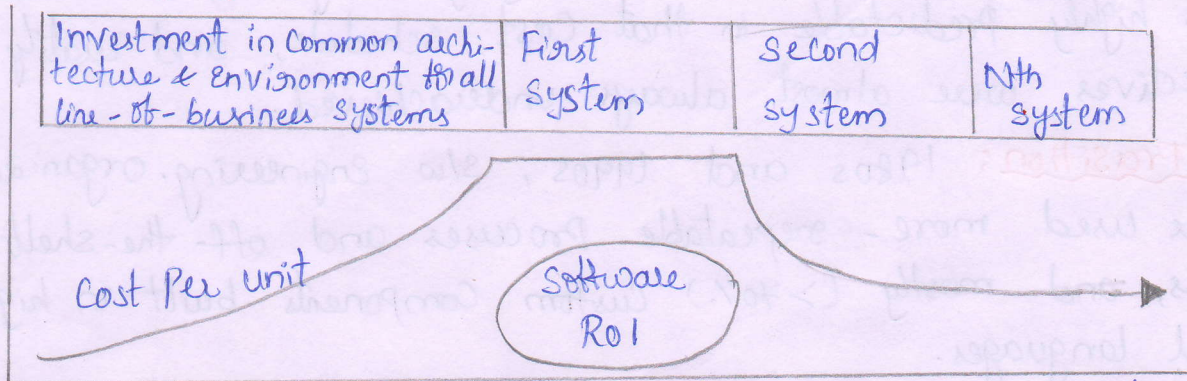 Investment in Common archi-
tecture & Environment for all
line-of-business systems
First
System
Second
System
Nth
System
Cost Per unit
Software
ROI